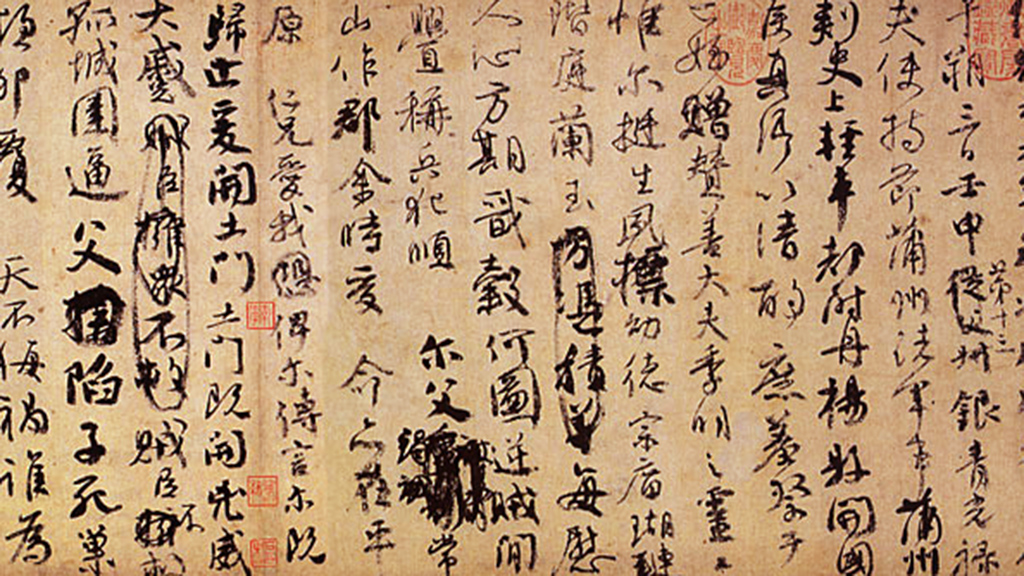 朔三日壬申第十三從父叔銀青光祿
夫使持節蒲州諸軍事蒲州
刺史上輕車都尉丹楊縣開國
侯真卿以清酌庶羞祭于
亡姪贈贊善大夫季明之靈曰
惟爾挺生夙標幼德宗廟瑚璉
階庭蘭玉方憑積善每慰
人心方期戩穀何圖逆賊間
釁稱兵犯順爾父竭誠常
山作郡余時受命亦在平
原仁兄愛我俾爾傳言爾既
歸止爰開土門土門既開凶威
大蹙賊臣擁眾不救賊臣不
孤城圍逼父陷子死巢
傾卵覆天不悔禍誰為